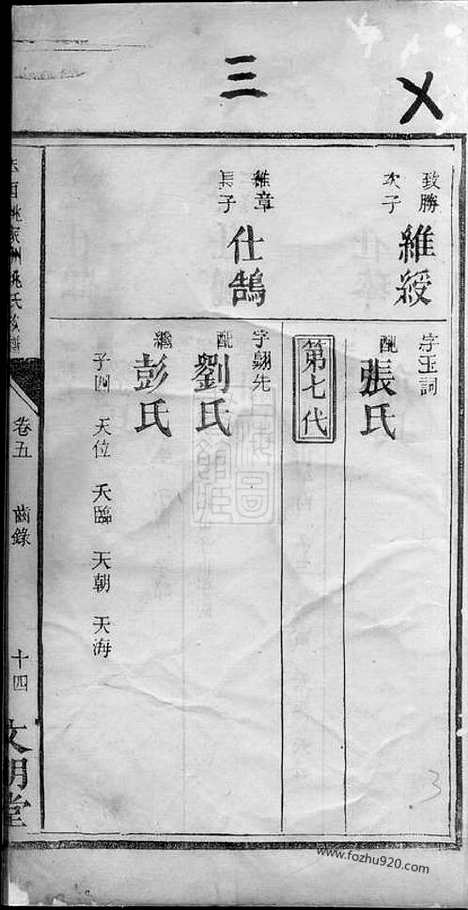 三
乂
致勝
次子
維綬
字玉詞
配張氏
第七代
維章
長子
仕鵠
字翶先
配劉氏
繼彭氏
子四 天位 天臨 天朝 天海
姚氏族譜
卷五
齒錄
十四
文明堂
3
www.fozhu920.com